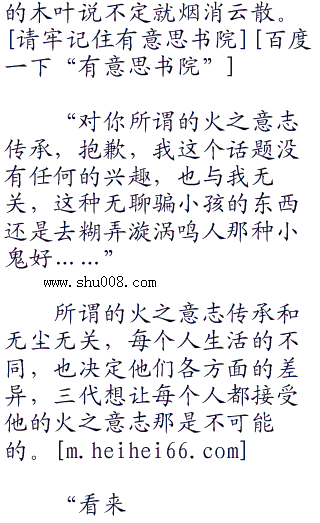 的木叶说不定就烟消云散。
[请牢记住有意思书院][百度
一下“有意思书院”]
“对你所谓的火之意志
传承，抱歉，我这个话题没
有任何的兴趣，也与我无
关，这种无聊骗小孩的东西
还是去糊弄漩涡鸣人那种小
鬼好……”
www.shu008.com
所谓的火之意志传承和
无尘无关，每个人生活的不
同，也决定他们各方面的差
异，三代想让每个人都接受
他的火之意志那是不可能
的。[m.heihei66.com]
“看来